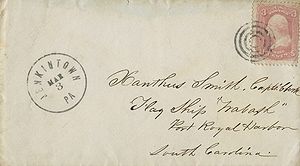 JENKINTOWN
PA
MAR
3
Xanthus Smith, Capt's Clerk
Flag Ship "Wabash"
Port Royal Harbor
South Carolina.